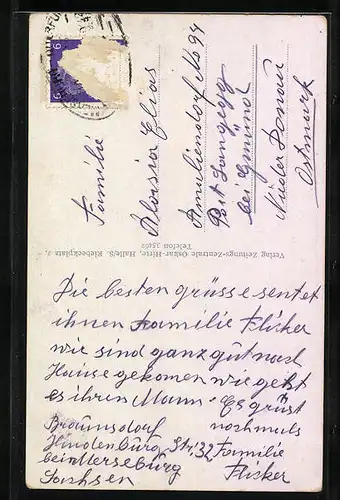 Familie
Aloisia Elias
Amaliendorf No 94
Post Langegg
bei Gmünd
Nieder Donau
Ostmark
Verlag Zeitungs-Zentrale Oskar Hirte, Halle/S. Riebeckplatz
Telefon 35462
Die besten grüsse sentet
ihnen Familie Flicker
wie sind ganz gut nach
Hause gekomen wie getzt
es ihren Mann. Es grüst
nochmals
Familie
Flicker
Braunsdorf
Hindenburg Str. 32
bei Merseburg
Sachsen